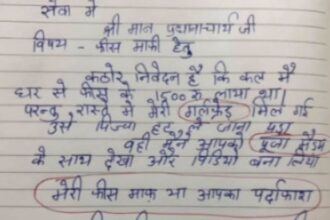 सेवा मे
श्री मान प्रधानाचार्य जी
विषय - फीस माफी हेतु
कठोर निवेदन है कि कल मै
घर से फीस के 1500 रु लाया था।
परन्तु रास्ते मे मेरी गर्लफ्रेंड मिल गई
उसे पिज्जा हट ले जाना पड़ा
वही मैने आपको पूजा मैडम
के साथ देखा और विडियो बना लिया
मेरी फीस माफ या आपका पर्दाफाश